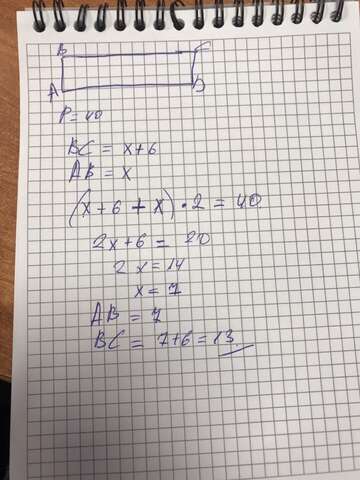 B C
A D
P = 40
BC = x+6
AB = x
(x+6+x)·2 = 40
2x+6 = 20
2x=14
x=7
AB = 7
BC = 7+6=13